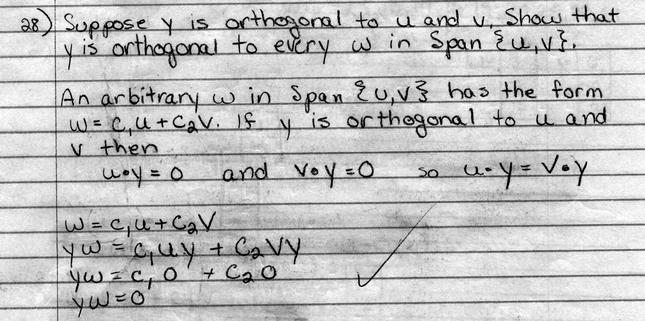 28) Suppose y is orthogonal to u and v. Show that
y is orthogonal to every w in Span {u,v}.
An arbitrary w in Span {u,v} has the form
w = c₁u + c₂v. If y is orthogonal to u and
v then
u•y = 0 and v•y = 0 so u•y = v•y
w = c₁u + c₂v
yw = c₁uy + c₂vy
yw = c₁0 + c₂0
yw = 0